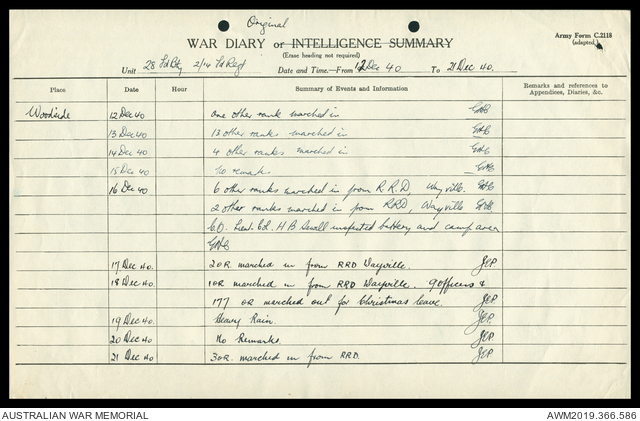 Original
Army Form C.2118
(adapted.)
WAR DIARY or INTELLIGENCE SUMMARY
(Erase heading not required)
Unit 28 Fd Bty 2/14 Fd Regt Date and Time.—From 12 Dec 40 To 21 Dec 40.
Place Hour Summary of Events and Information Remarks and references to Appendices, Diaries, &c.
Woodside 12 Dec 40 one other rank marched in
13 Dec 40 13 other ranks marched in
14 Dec 40 4 other ranks marched in
15 Dec 40 No remarks
16 Dec 40 6 other ranks marched in from R.R.D, Wayville.
2 other ranks marched in from RRD, Wayville
C.O. Lieut. Col. H B Sewell inspected battery and camp area
17 Dec 40. 2 OR. marched in from RRD Wayville. JEP.
18 Dec 40. 1 OR marched in from RRD Wayville. 9 Officers &
177 OR marched out for Christmas leave. JEP.
19 Dec 40. Heavy Rain. JEP.
20 Dec 40 No Remarks. JEP.
21 Dec 40 3 OR. marched in from RRD. JEP.
AUSTRALIAN WAR MEMORIAL AWM2019.366.586